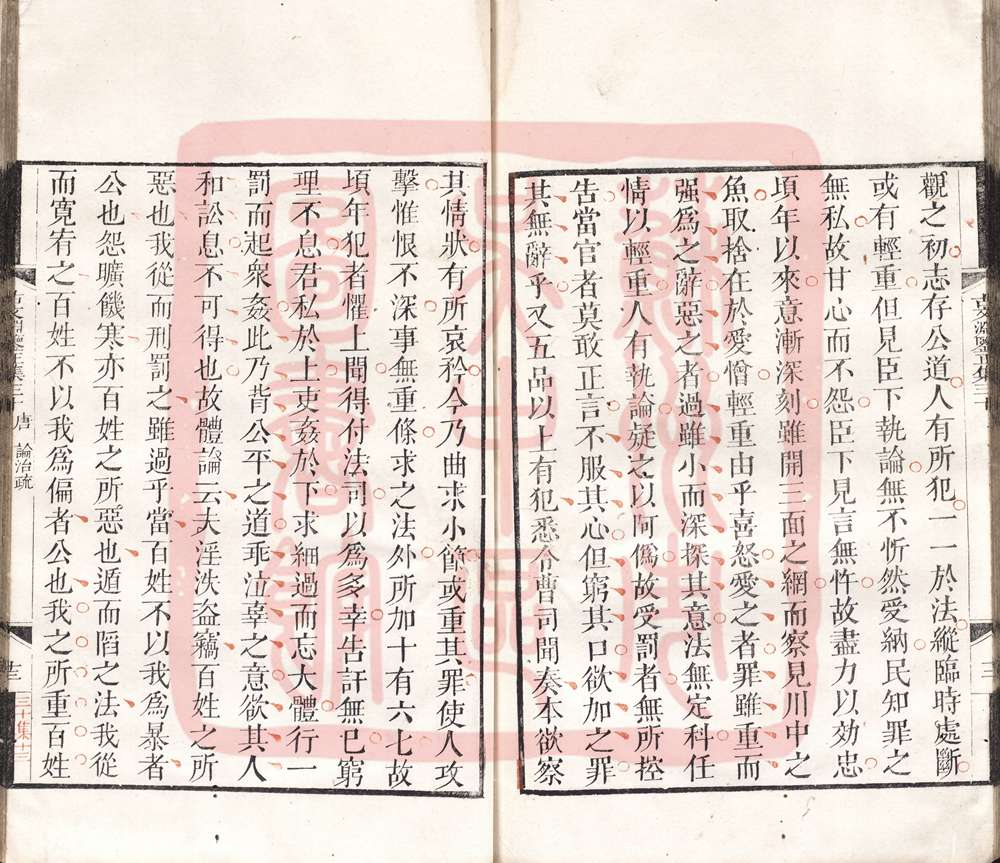 觀之初志存公道人有所犯一一於法縱臨時處斷
或有輕重但見臣下執論無不忻然愛納民知罪之
無私故甘心而不怨臣下見言無忤故盡力以効忠
頃年以來意漸深刻雖開三面之網而察見川中之
魚取捨在於愛憎輕重由乎喜怒愛之者罪雖重而
强爲之辭惡之者過雖小而深探其意法無定科任
情以輕重人有執論疑之以阿僞故受罰者無所控
告當官者莫敢正言不服其心但窮其口欲加之罪
其無辭乎又五品以上有犯悉令曹司聞奏本欲察
其情狀有所哀矜今乃曲求小節或重其罪使人攻
擊惟恨不深事無重條求之法外所加十有六七故
頃年犯者懼上聞得付法司以爲多幸告訐無已窮
理不息君私於上吏姦於下求細過而忘大體行一
罰而起衆姦此乃背公平之道乖泣辜之意欲其人
和訟息不可得也故體論云夫淫泆盜竊百姓之所
惡也我從而刑罰之雖過乎當百姓不以我爲暴者
公也怨曠饑寒亦百姓之所惡也遁而陷之法我從
而寬宥之百姓不以我爲偏者公也我之所重百姓
唐 論治疏
三十集